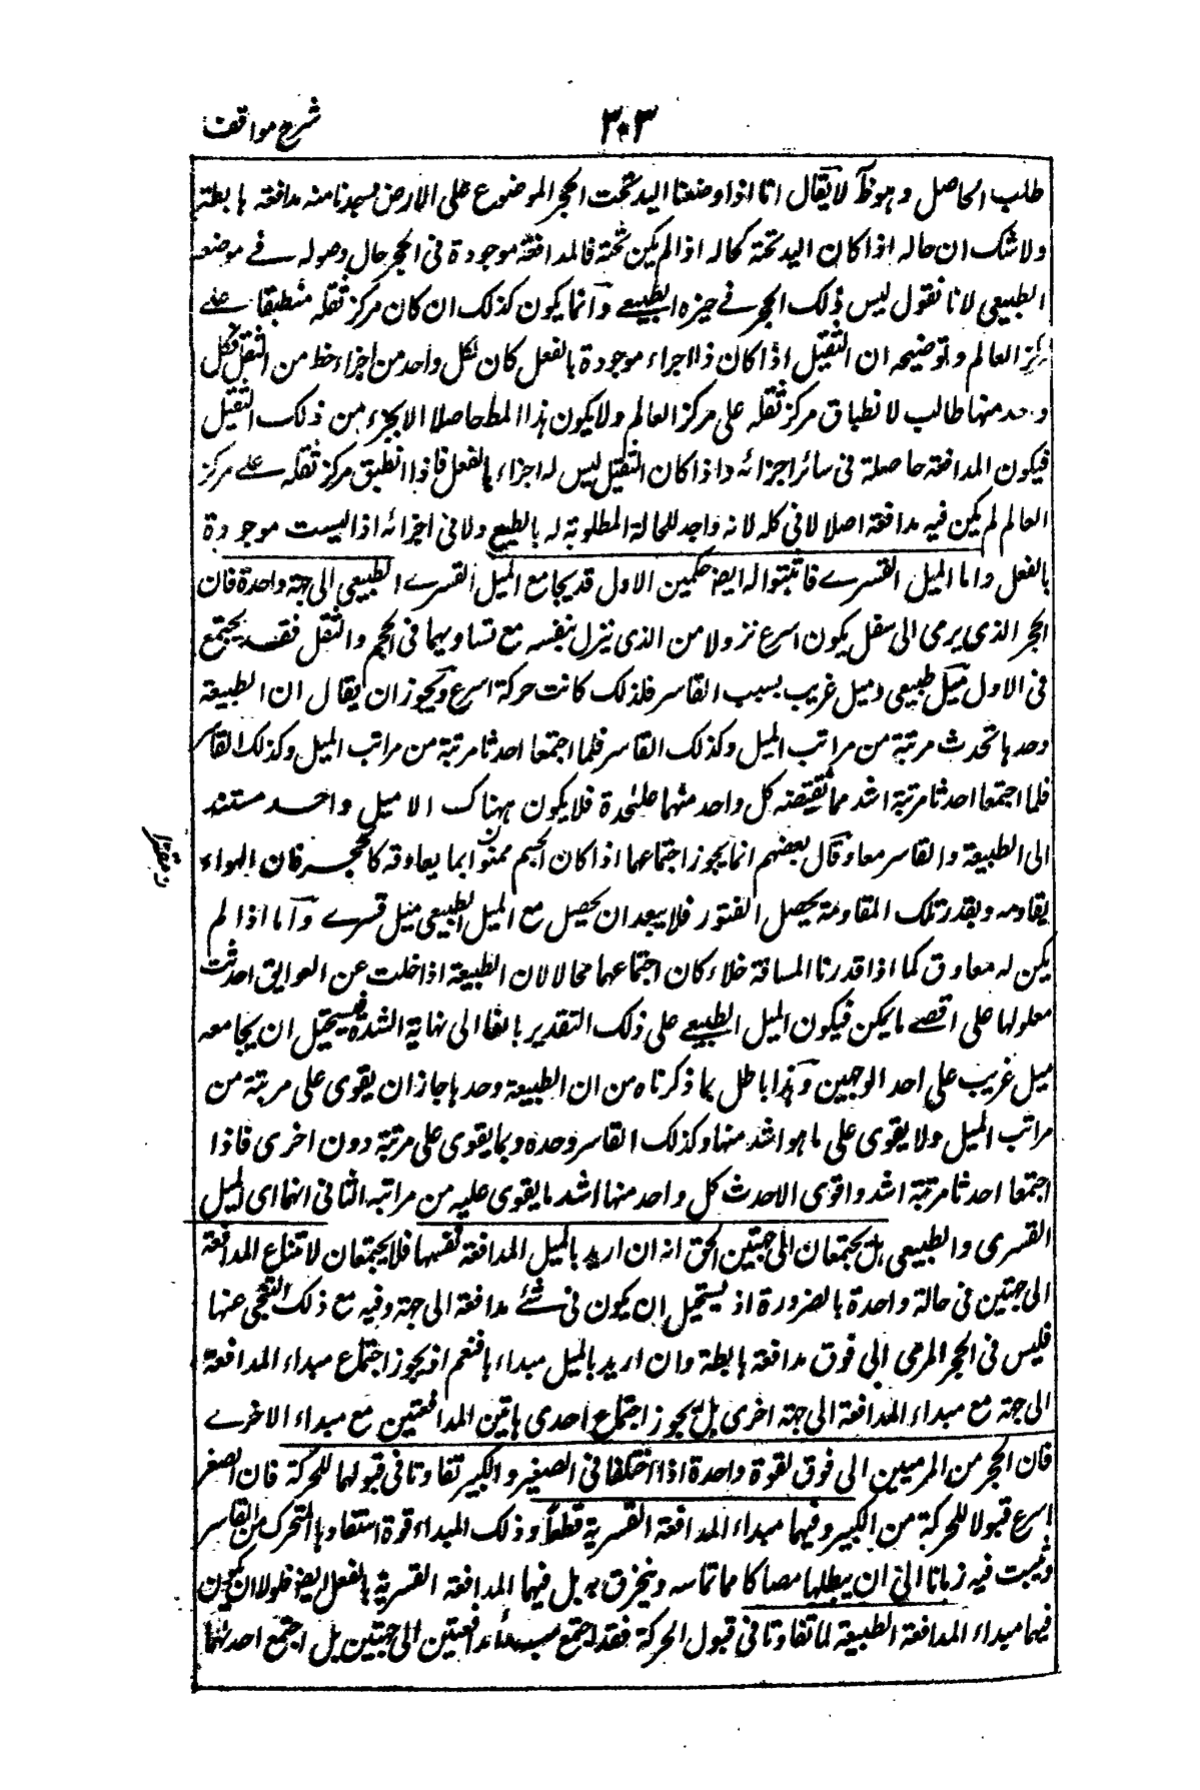 شرح مواقف
۳۰۳
طلب الحاصل وهوظ لا يقال انا اذا وضعنا اليد تحت الحجر الموضوع على الارض نجدنا منه مدافعة هابطة
ولا شك ان حاله اذا كان اليد تحته كحاله اذا لم يكن تحته فالمدافعة موجودة فى الحجر حال وصوله فے موضعه
الطبيعى لانا نقول ليس ذلك الحجر فے حيزه الطبيعے وانما يكون كذلك ان كان مركز ثقله منطبقا علے
مركز العالم وتوضيحه ان الثقيل اذا كان ذا اجزاء موجودة بالفعل كان لكل واحد من اجزاءه حظ من الثقل فكل
واحد منها طالب لانطباق مركز ثقله على مركز العالم ولا يكون هذا المط حاصلا الا لجزء من ذلك الثقيل
فيكون المدافعة حاصلة فى سائر اجزائه واذا كان الثقيل ليس له اجزاء بالفعل فاذا انطبق مركز ثقله علے مركز
العالم لم يكن فيه مدافعة اصلا لا فى كله لانه واجد للحالة المطلوبة له بالطبع ولا فى اجزائه اذ اليست موجودة
بالفعل واما الميل القسرے فاثبتوا له ايضا حكمين الاول قد يجامع الميل القسرے الطبيعى الى جهة واحدة فان
الحجر الذى يرمى الى سفل يكون اسرع نزولا من الذى ينزل بنفسه مع تساويهما فى الحجم والثقل فقد يجتمع
فى الاول ميل طبيعى وميل غريب بسبب القاسر فلذلك كانت حركة اسرع ويجوز ان يقال ان الطبيعة
وحدها تحدث مرتبة من مراتب الميل وكذلك القاسر فلما اجتمعا احدثا مرتبة من مراتب الميل وكذلك القاسر
فلما اجتمعا احدثا مرتبة اشد مما يقتضيه كل واحد منهما علىحدة فلا يكون هناك الا ميل واحد مستند
الى الطبيعة والقاسر معا وقال بعضهم انما يجوز اجتماعهما اذا كان الجسم ممنوا بما يعاوقه كالحجر فان الهواء
يقاومه وبقدر تلك المقاومة يحصل الفتور فلا يبعد ان يحصل مع الميل الطبيعى ميل قسرے واما اذا لم
يكن له معاوق كما اذا قدرنا المسافة خلاء كان اجتماعهما محالا لان الطبيعة اذا خلت عن العوايق احدثت
معلولها على اقصے ما يمكن فيكون الميل الطبيعے على ذلك التقدير بالغا الى نهاية الشدة فيستحيل ان يجامعه
ميل غريب على احد الوجهين وهذا باطل بما ذكرناه من ان الطبيعة وحدها جاز ان يقوى على مرتبة من
مراتب الميل ولا يقوى على ما هو اشد منها وكذلك القاسر وحده ربما يقوى على مرتبة دون اخرى فاذا
اجتمعا احدثا مرتبة اشد واقوى الاحدث كل واحد منها اشد ما يقوى عليه من مراتبه الثانى انهما اى الميل
القسرى والطبيعى هل يجتمعان الى جهتين الحق انه ان اريد بالميل المدافعة نفسها فلا يجتمعان لامتناع المدافعة
الى جهتين فى حالة واحدة بالضرورة اذ يستحيل ان يكون فى شئے مدافعة الى جهة وفيه مع ذلك التنحى عنها
فليس فى الحجر المرمى الى فوق مدافعة هابطة وان اريد بالميل مبداءها فنعم اذ يجوز اجتماع مبداء المدافعة
الى جهة مع مبداء المدافعة الى جهة اخرى بل يجوز اجتماع احدى هاتين المدافعتين مع مبداء الاخرے
فان الحجر من المرميين الى فوق بقوة واحدة اذا اختلفا فى الصغير والكبير تفاوتا فى قبولهما للحركة فان الصغير
اسرع قبولا للحركة من الكبير وفيهما مبداء المدافعة القسرية قطعا وذلك المبداء قوة استفادها المتحرك من القاسر
وثبت فيه زمانا الى ان يبطلها مصاكا مما تماسه وينخرق به بل فيهما المدافعة القسرية بالفعل ايضا فلولا ان يكون
فيهما مبداء المدافعة الطبيعة لما تفاوتا فى قبول الحركة فقد اجتمع مبدأ مدافعتين الى جهتين بل اجتمع احدلهما